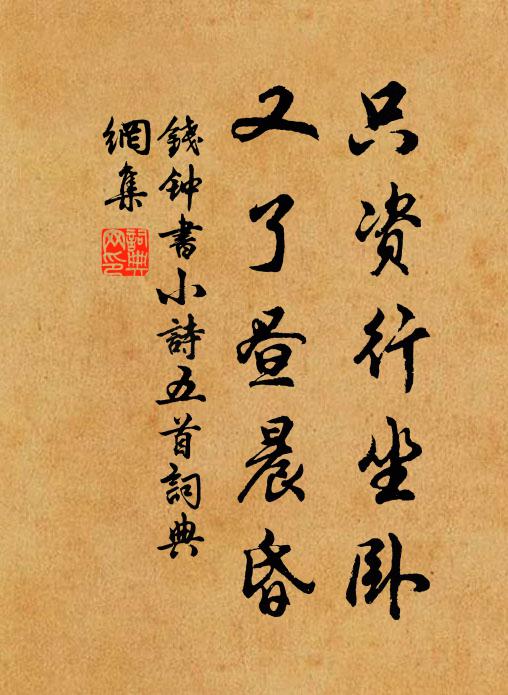 只资行坐卧
又了昼晨昏
錢钟書小詩五首詞典
網集
詞典
网印